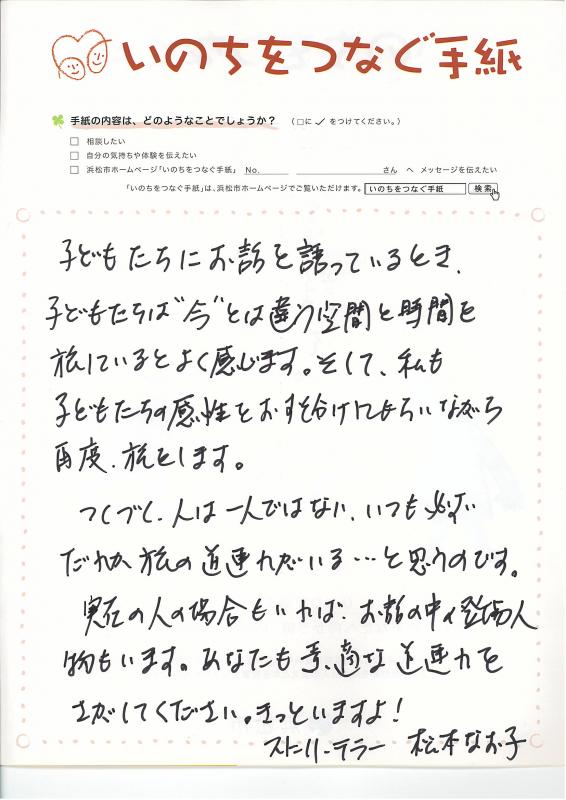 いのちをつなぐ手紙
手紙の内容は、どのようなことでしょうか？ （□に✓をつけてください。）
□ 相談したい
□ 自分の気持ちや体験を伝えたい
□ 浜松市ホームページ「いのちをつなぐ手紙」 No. さん へ メッセージを伝えたい
「いのちをつなぐ手紙」は、浜松市ホームページでご覧いただけます。 いのちをつなぐ手紙 検索
子どもたちにお話を語っているとき、
子どもたちは"今"とは違う空間と時間を
旅しているとよく感じます。そして、私も
子どもたちの感性をおすそ分けしてもらいながら
再度、旅をします。
つくづく、人は一人ではない、いつも
だれか旅の道連れがいる…と思うのです。
実在の人の場合もいれば、お話の中の登場人
物もいます。あなたも素適な道連れを
さがしてください。きっといますよ！
ストーリーテラー 松本なお子